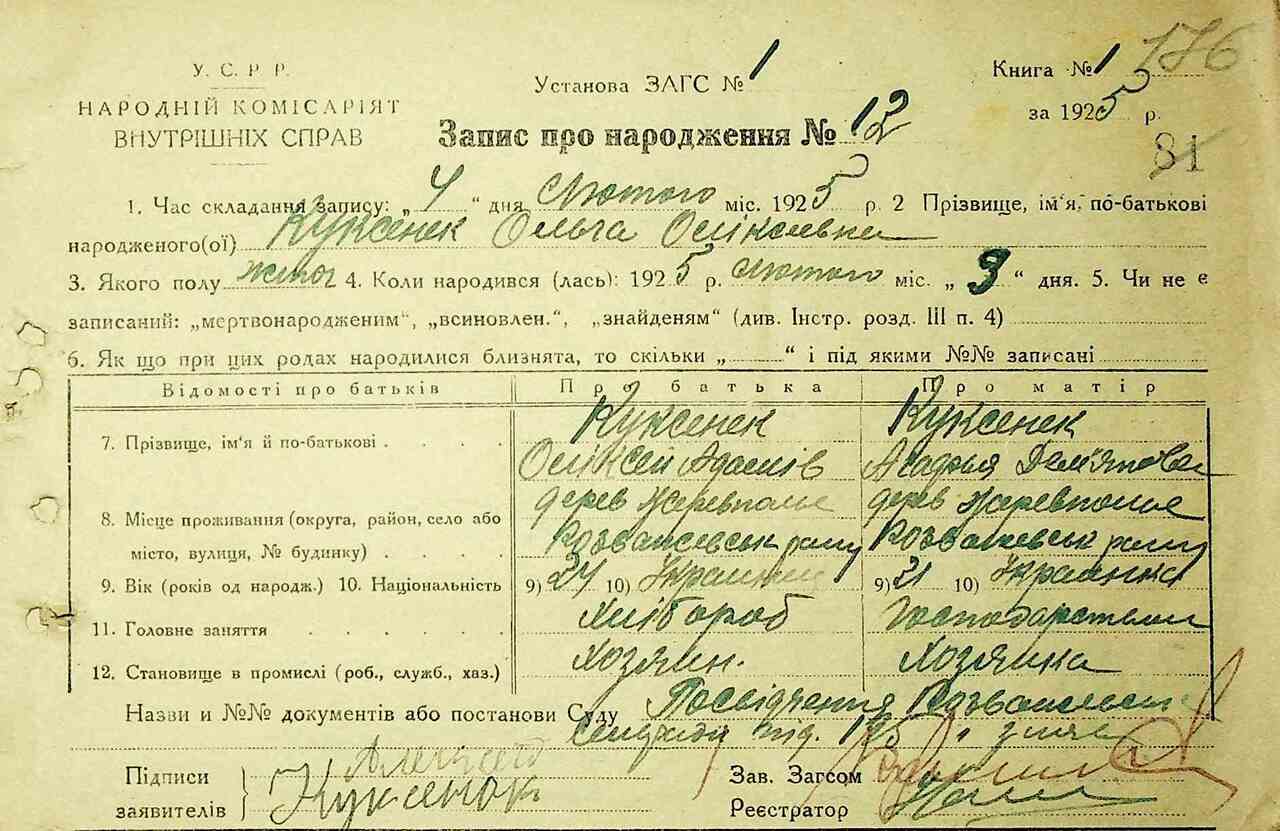 У. С. Р Р.
НАРОДНІЙ КОМІСАРІЯТ
ВНУТРІШНІХ СПРАВ
Установа ЗАГС № 1
Книга № 1
176
за 1925 р.
Запис про народження № 12
81
1. Час складання запису: „4“ дня Лютого міс. 1925 р. 2 Прізвище, ім'я, по-батькові
народженого(ої) Куксенок Ольга Олїксиевна
3. Якого полу жіноч 4. Коли народився (лась): 1925 р. Лютого міс. „3“ дня. 5. Чи не є
записаний: „мертвонародженим“, „всиновлен.“, „знайденям“ (див. Інстр. розд. III п. 4)
6. Як що при цих родах народилися близнята, то скільки „ “ і під якими №№ записані
Відомості про батьків Про батька Про матір
7. Прізвище, ім'я й по-батькові Куксенок Куксенок
Олїксей Адамів
8. Місце проживання (округа, район, село або дерев Жеревполье дерев Жеревполье
місто, вулиця, № будинку)
9. Вік (років од народж.) 10. Національність 9) 10) 9) 10) Украинка
11. Головне заняття Хлібороб
12. Становище в промислі (роб., служб., хаз.) Хозяин. Хозяйка
Назви и №№ документів або постанови Суду Посвідчення
Сельради від
Підписи
заявителів
Алексей
Куксенок
Зав. Загсом
Реєстратор